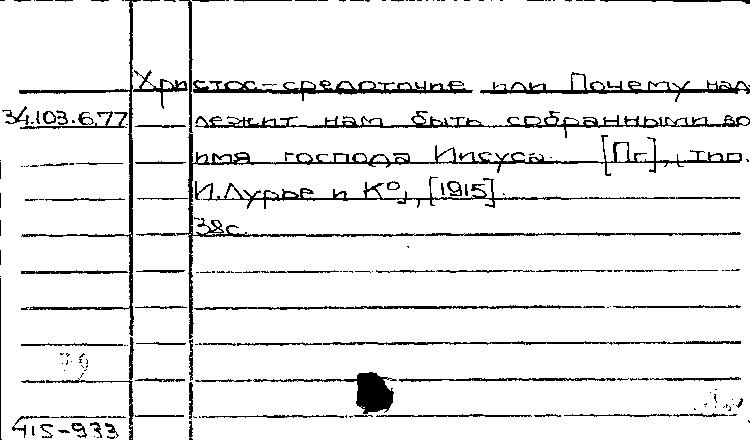 Христос-средоточие или Почему над
34.103.6.77 лежит нам быть собранными во
имя господа Иисуса. [Пг], тип.
И.Лурье и К°, [1915].
38с.
79
415-933